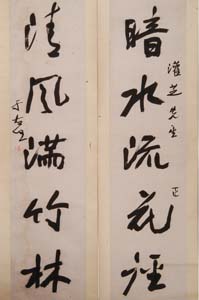 暗水流花径
灌芝先生
正
清风满竹林
于右任